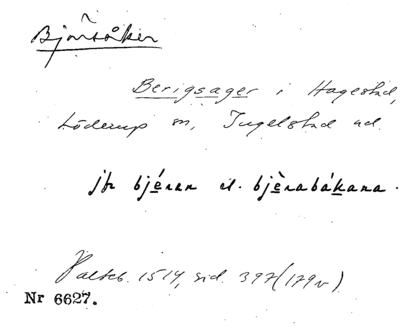 Björsåker
Berigsager i Hagestad,
Löderup sn, Ingelstad hd.
jfr bjérer el. bjèrabákana.
Palteb. 1514, sid. 397 (179v)
Nr 6627.